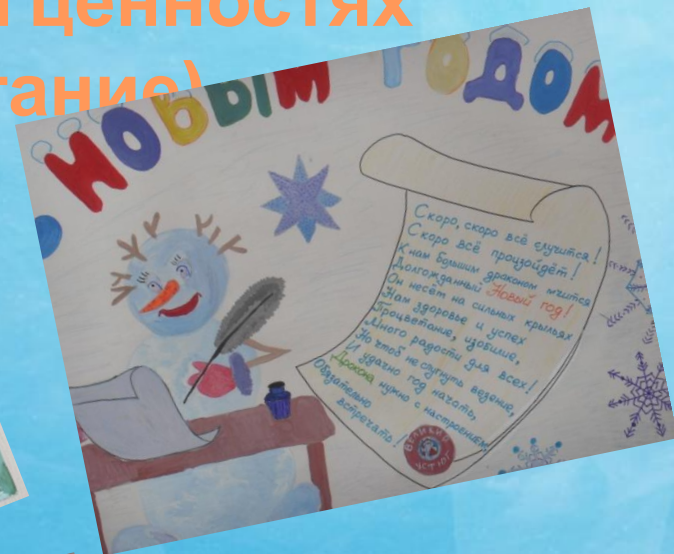 ценностях
тание)
НОВЫМ ГОДОМ
Скоро, скоро всё случится!
Скоро всё произойдёт!
К нам большим драконом мчится
Долгожданный Новый год!
Он несёт на сильных крыльях
Нам здоровье и успех
Процветание, изобилие,
Много радости для всех!
Но чтоб не спугнуть везение,
И удачно год начать,
Дракона нужно с настроением
Обязательно
встречать!
ВЕЛИКИЙ
УСТЮГ